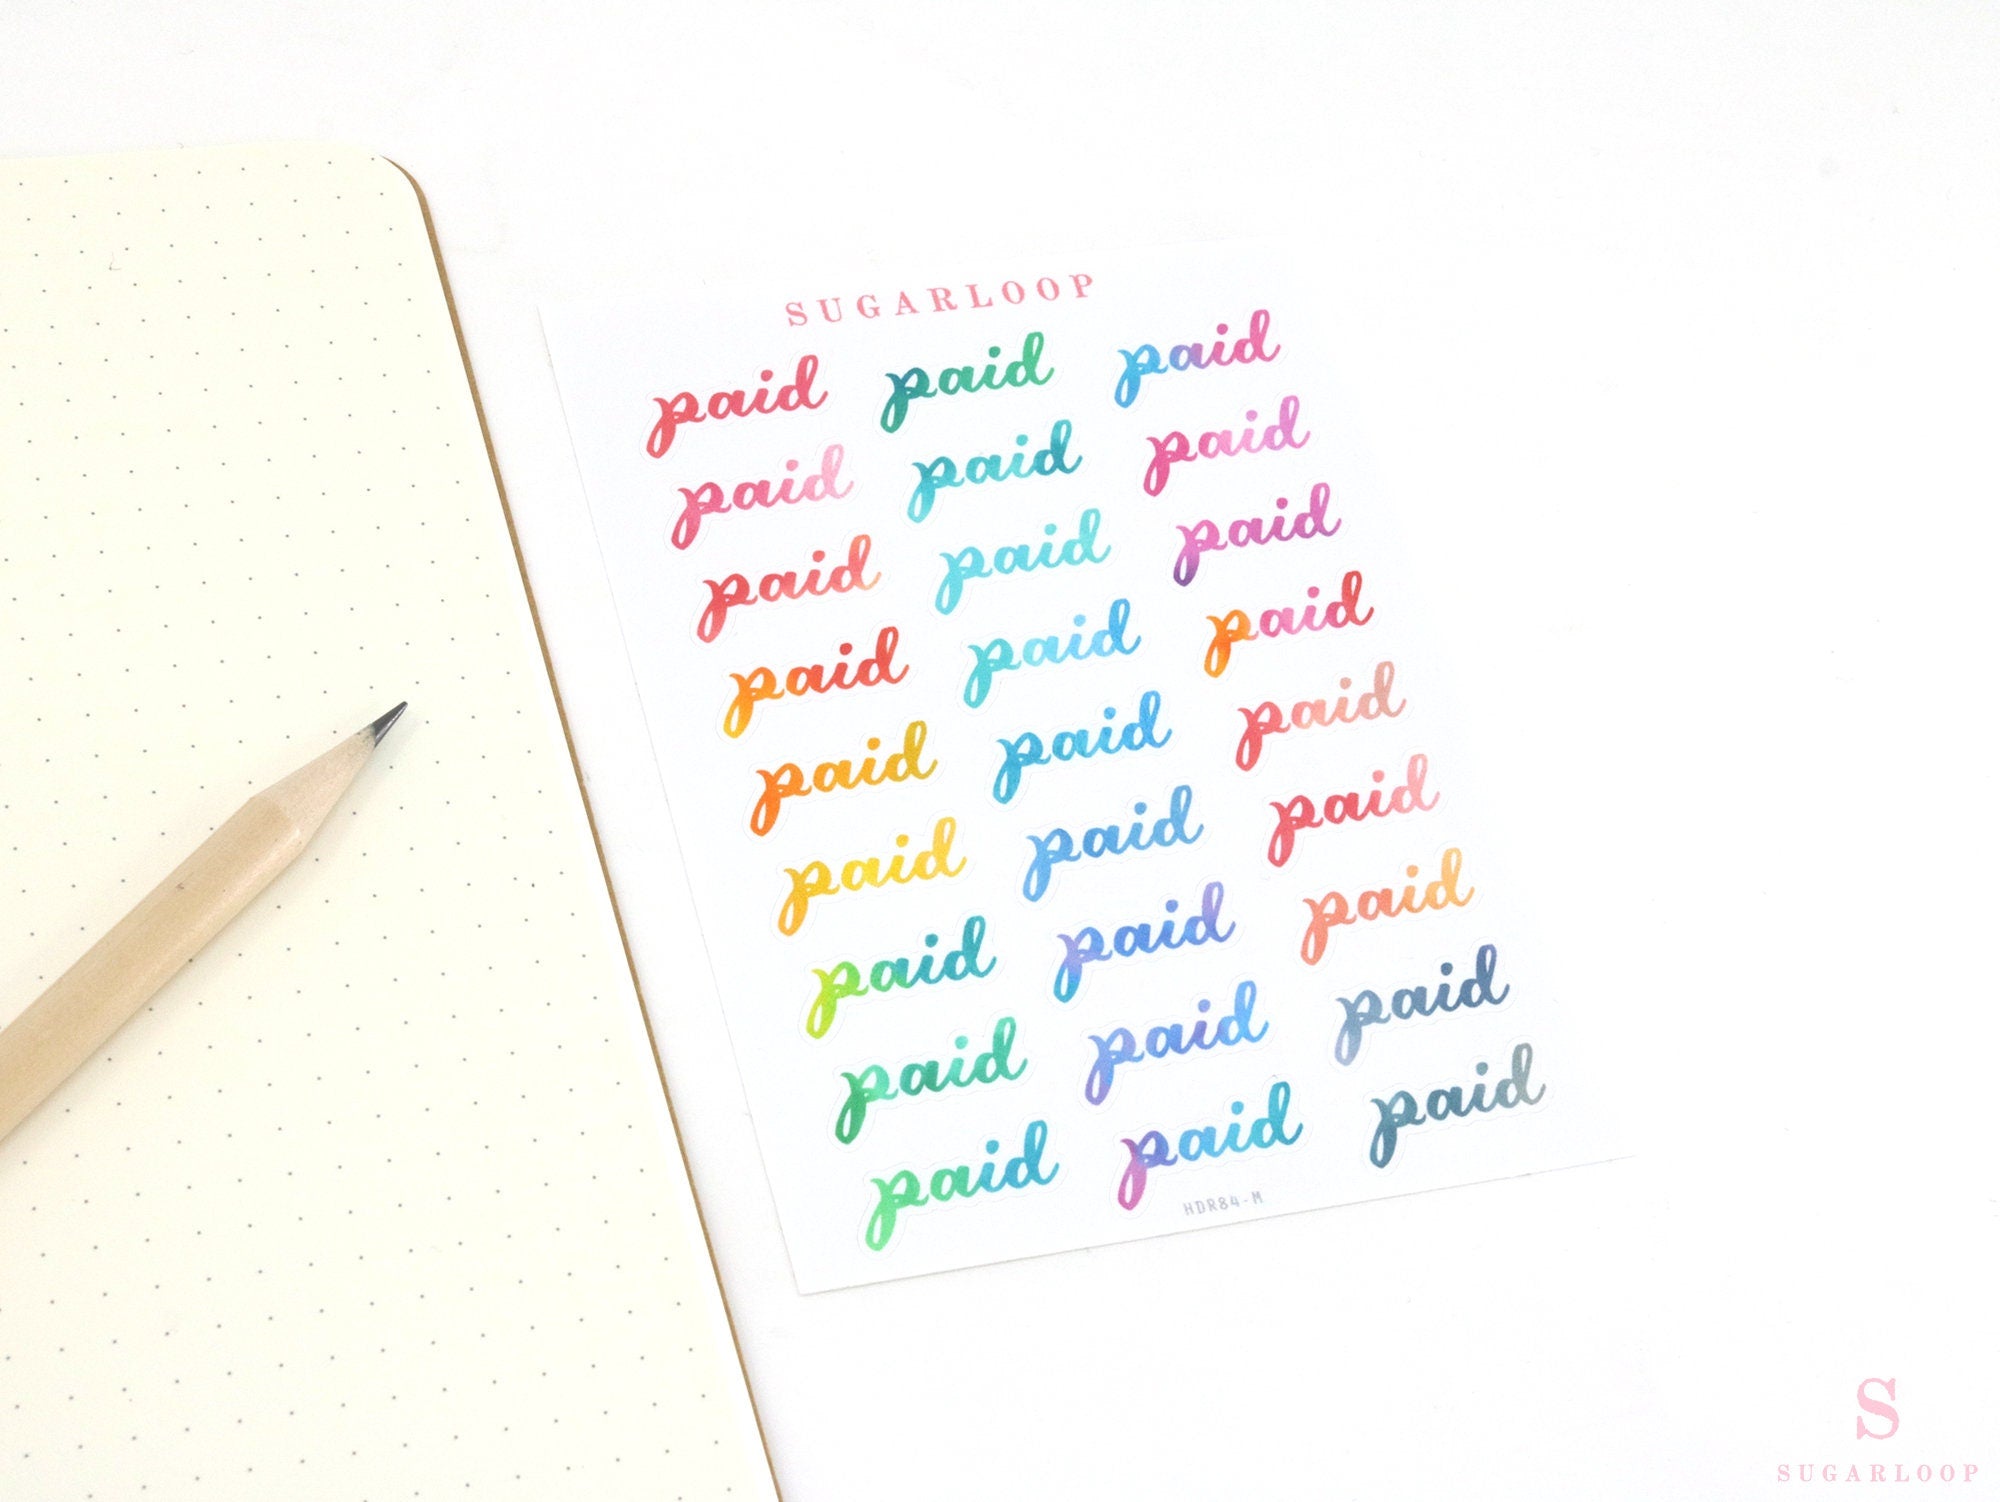 SUGARLOOP
paid paid paid
paid paid paid
paid paid paid
paid paid paid
paid paid paid
paid paid paid
paid paid paid
paid paid paid
paid paid paid
HDR84-M
S
SUGARLOOP